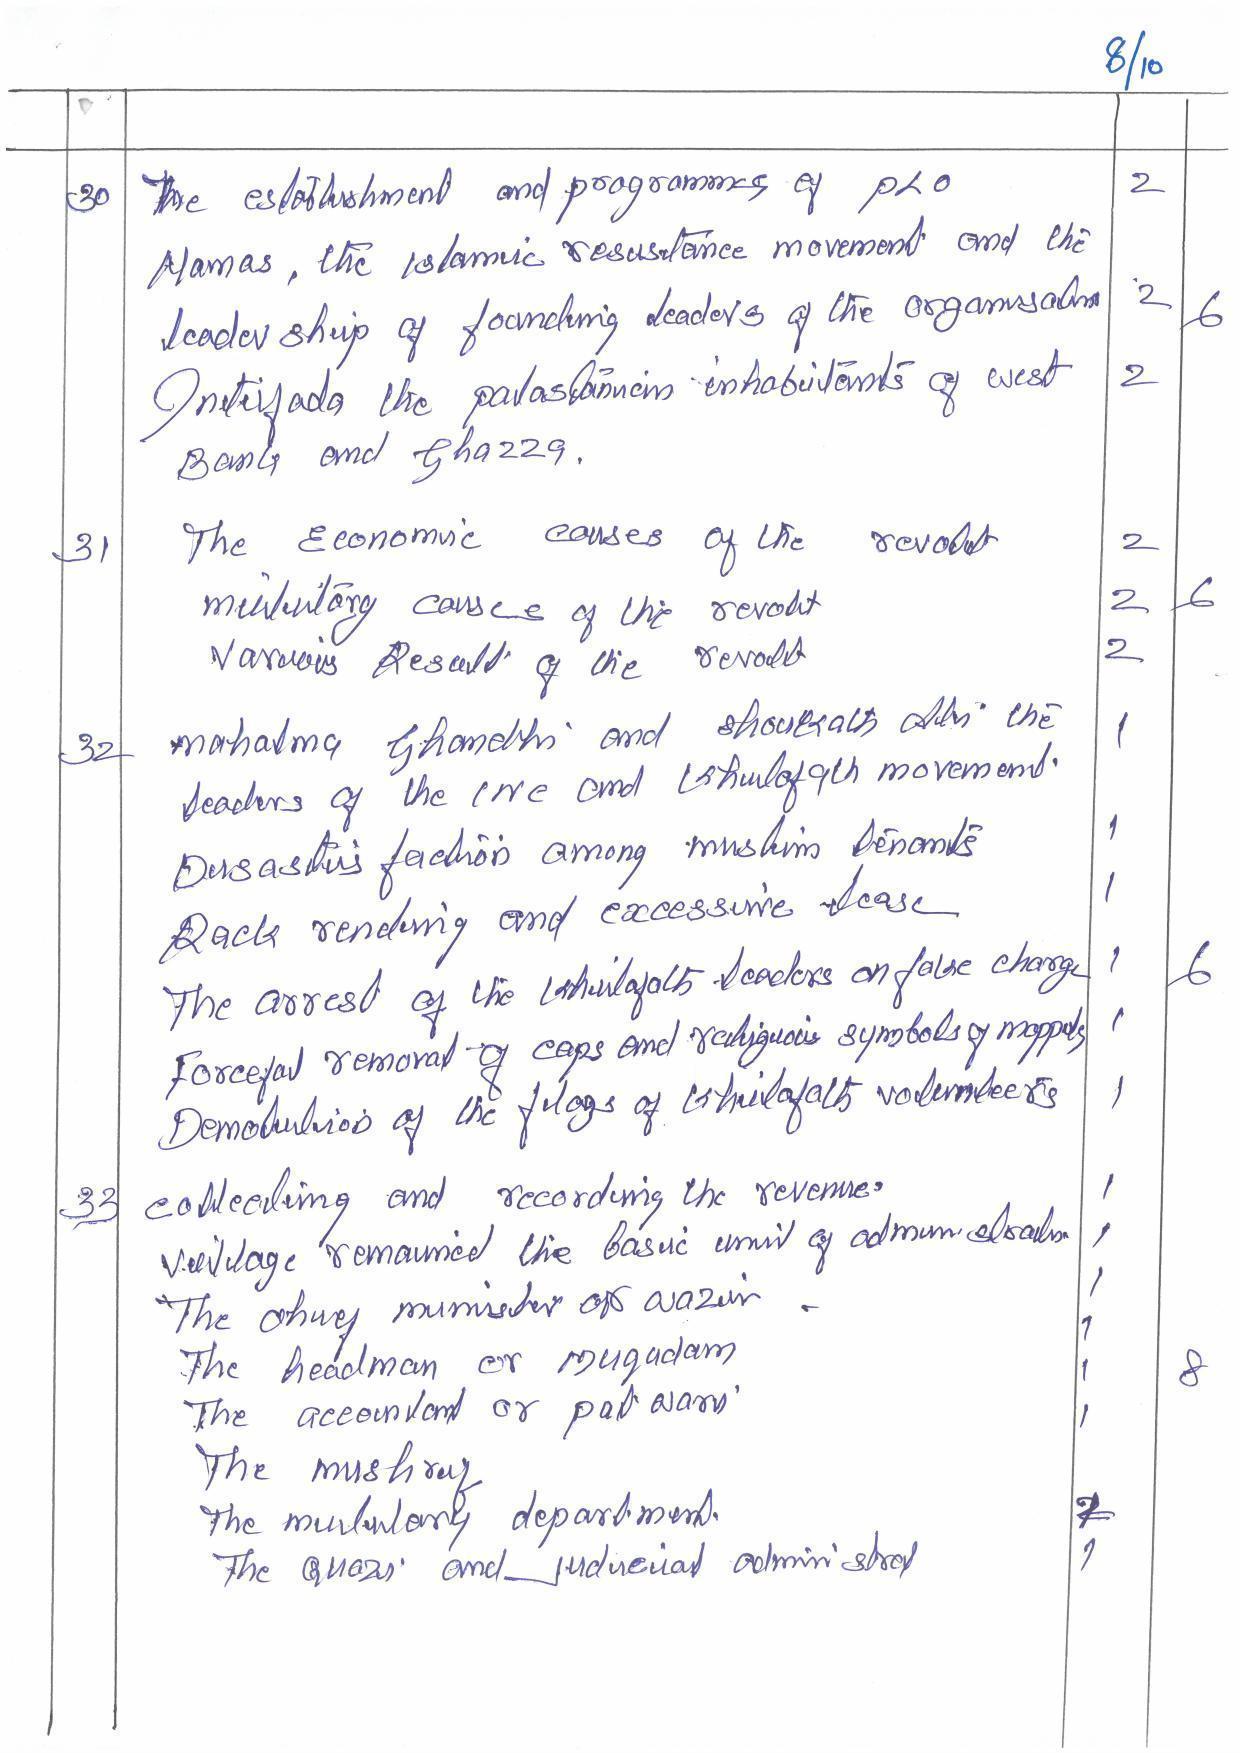 8/10
30 The establishment and programmes of PLO 2
Hamas, the islamic resistance movement and the
leadership of founding leaders of the organisation 2 6
Intifada the palastānnein inhabitants of west 2
Bank and Ghazza.
31 The Economic causes of the revolt 2
military causes of the revolt 2 6
Various Result of the revolt 2
32 mahatma Ghandhi and shoukath Ali the 1
leaders of the INC and khilafath movement.
Disastisfaction among muslim tenants 1
Rack rending and excessive lease 1
The arrest of the khilafath leaders on false charge 1 6
Forceful removal of caps and religious symbols of mappilas 1
Demolution of the flags of khilafath volunteers 1
33 collecting and recording the revenue. 1
village remained the basic unit of administration 1
The chief minister or wazir 1
The headman or muqadam 1
The accountant or patwari 1 8
The mushrif 1
The military department.
The Quazi and judicial administrat 1